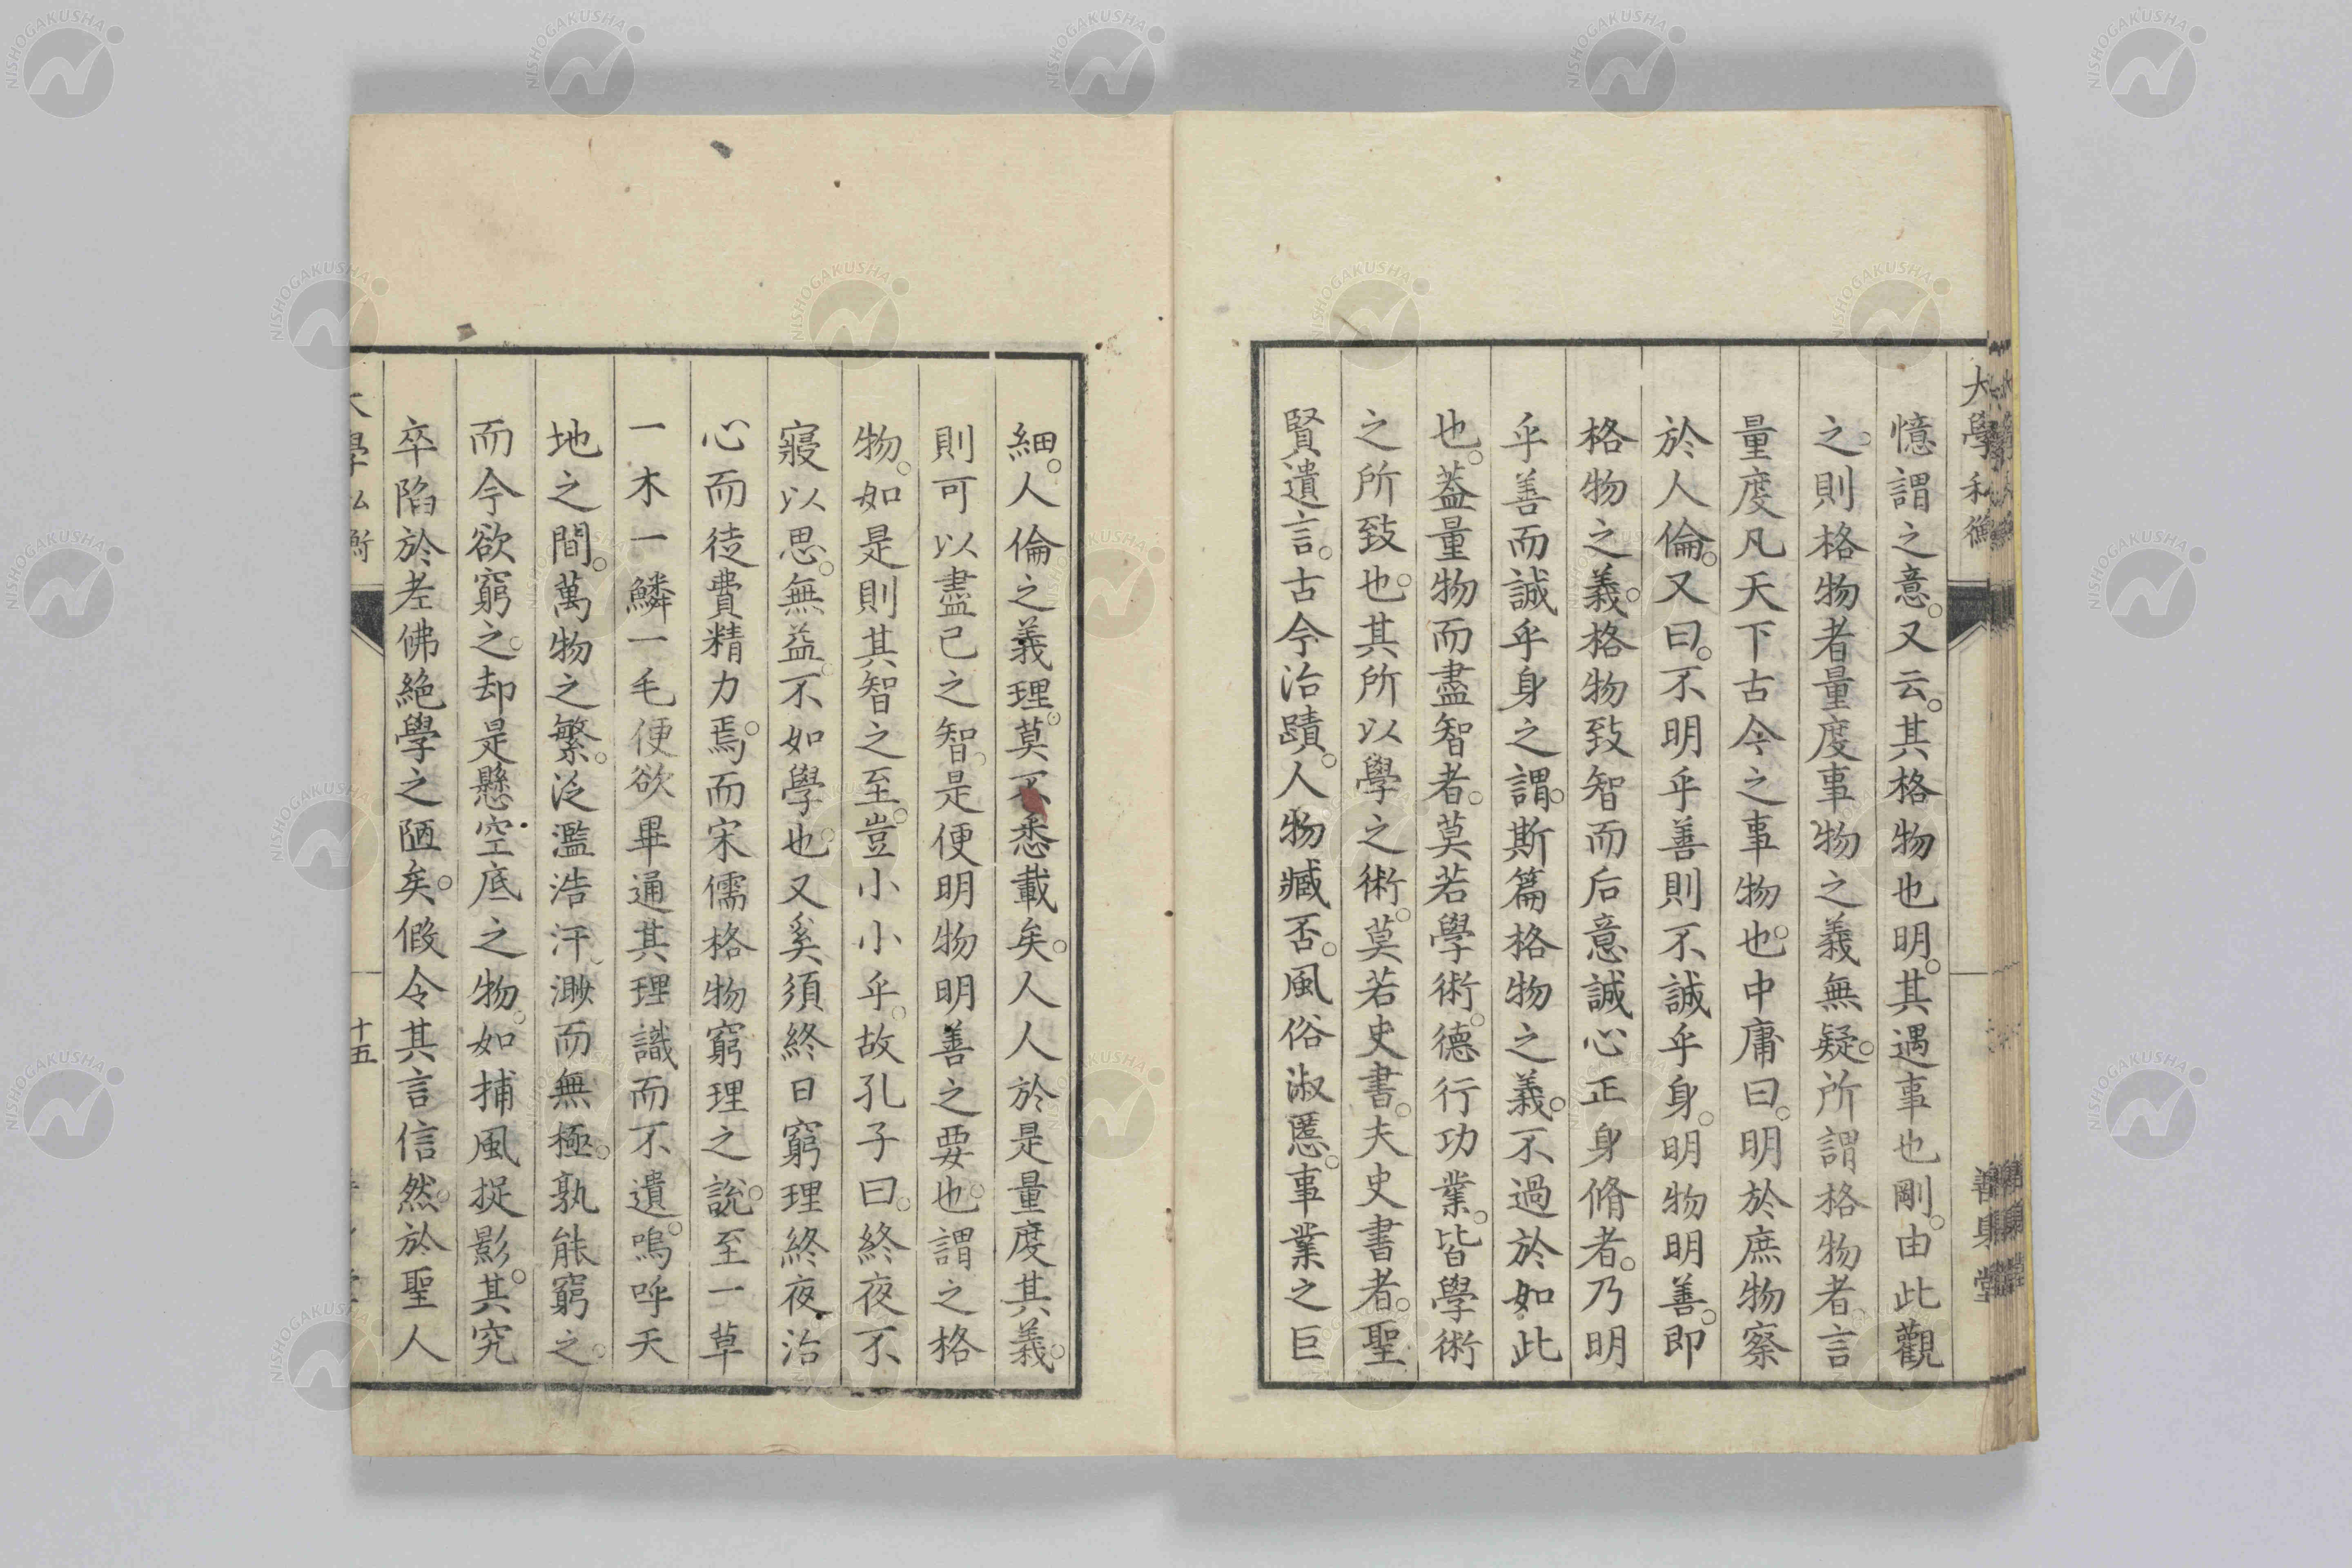 大學私衡
憶謂之意。又云。其格物也明。其遇事也剛。由此觀
之。則格物者量度事物之義無疑。所謂格物者。言
量度凡天下古今之事物也。中庸曰。明於庶物察
於人倫。又曰。不明乎善則不誠乎身。明物明善。即
格物之義。格物致智而后意誠心正身脩者。乃明
乎善而誠乎身之謂。斯篇格物之義。不過於如此
也。蓋量物而盡智者。莫若學術。德行功業。皆學術
之所致也。其所以學之術。莫若史書。夫史書者。聖
賢遺言。古今治蹟。人物臧否。風俗淑慝。事業之巨
細。人倫之義理。莫不悉載矣。人人於是量度其義。
則可以盡己之智。是便明物明善之要也。謂之格
物。如是則其智之至。豈小小乎。故孔子曰。終夜不
寢以思。無益。不如學也。又奚須終日窮理終夜治
心而徒費精力焉。而宋儒格物窮理之說。至一草
一木一鱗一毛便欲畢通其理識而不遺。嗚呼天
地之間。萬物之繁。泛濫浩汗渺而無極。孰能窮之。
而今欲窮之。却是懸空底之物。如捕風捉影。其究
卒陷於老佛絕學之陋矣。假令其言信然。於聖人
大學私衡
十五
NISHOGAKUSHA